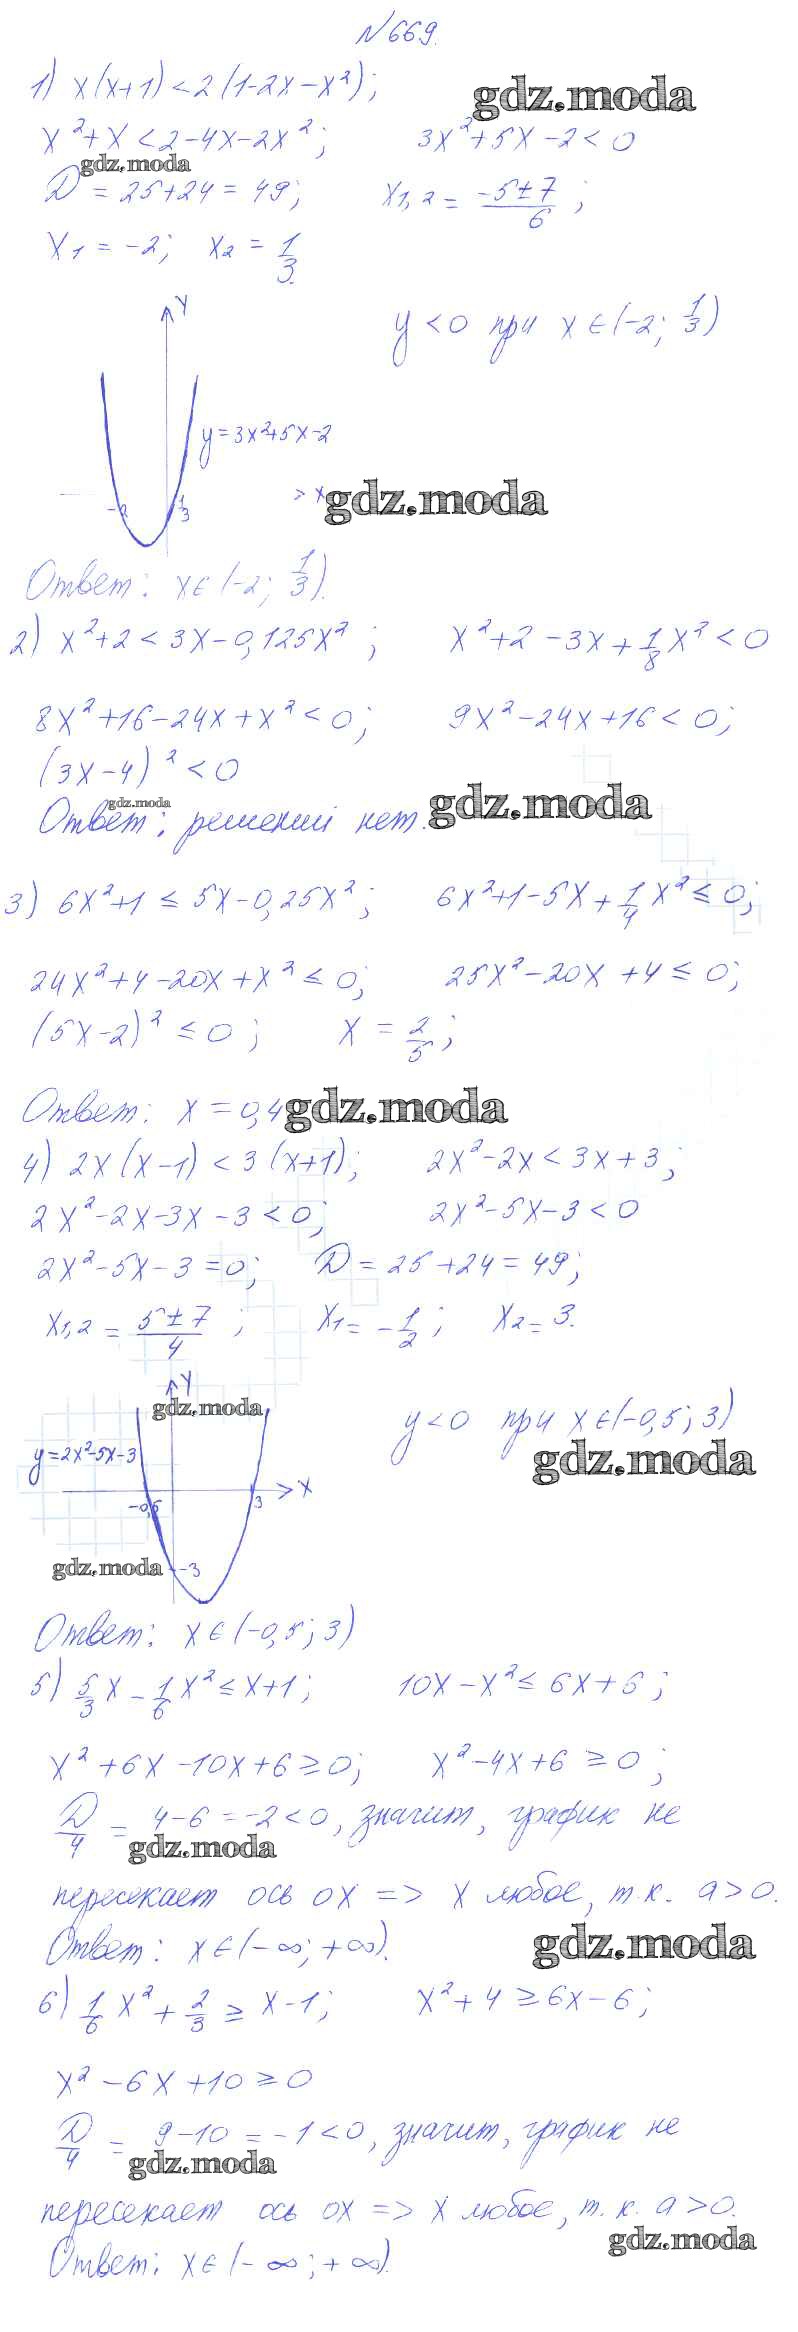 N669.
1) x(x+1)<2(1-2x-x²);
gdz.moda
x²+x<2-4x-2x²; 3x²+5x-2<0
gdz.moda
D=25+24=49; x1,2=(-5±7)/6;
x1=-2; x2=1/3.
y
y<0 при x∈(-2; 1/3)
y=3x²+5x-2
-2 1/3 x
gdz.moda
Ответ: x∈(-2; 1/3).
2) x²+2<3x-0,125x²; x²+2-3x+1/8x²<0
8x²+16-24x+x²<0; 9x²-24x+16<0;
(3x-4)²<0
gdz.moda
gdz.moda
Ответ: решений нет.
3) 6x²+1≤5x-0,25x²; 6x²+1-5x+1/4x²≤0;
24x²+4-20x+x²≤0; 25x²-20x+4≤0;
(5x-2)²≤0; x=2/5;
Ответ: x=0,4
gdz.moda
4) 2x(x-1)<3(x+1); 2x²-2x<3x+3;
2x²-2x-3x-3<0; 2x²-5x-3<0
2x²-5x-3=0; D=25+24=49;
x1,2=(5±7)/4; x1=-1/2; x2=3.
y
gdz.moda
y<0 при x∈(-0,5; 3)
y=2x²-5x-3
gdz.moda
x
-0,5 3
gdz.moda
-3
Ответ: x∈(-0,5; 3)
5) 5/3x-1/6x²≤x+1; 10x-x²≤6x+6;
x²+6x-10x+6≥0; x²-4x+6≥0;
D/4=4-6=-2<0, значит, график не
gdz.moda
пересекает ось ox => x любое, т.к. a>0.
Ответ: x∈(-∞; +∞).
gdz.moda
6) 1/6x²+2/3≥x-1; x²+4≥6x-6;
x²-6x+10≥0
D/4=9-10=-1<0, значит, график не
gdz.moda
пересекает ось ox => x любое, т.к. a>0.
gdz.moda
Ответ: x∈(-∞; +∞).